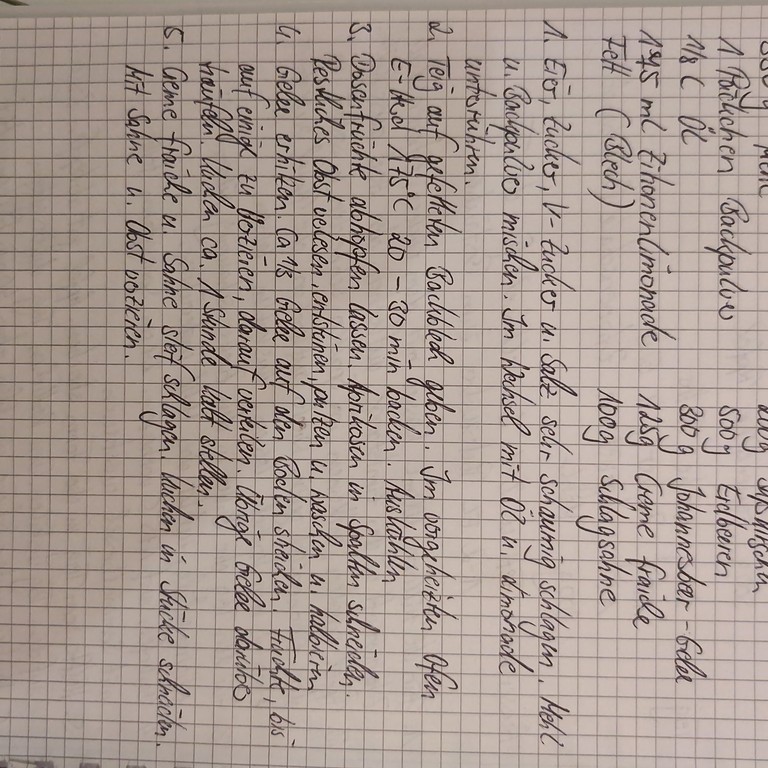 Mehl
1 Päckchen Backpulver
1/8 l Öl
175 ml Zitronenlimonade
Fett (Blech)
200g
500g Erdbeeren
300g Johannesbeer-Gelee
125g Crème fraîche
100g Schlagsahne
1. Eier, Zucker, V-Zucker u. Salz sehr schaumig schlagen. Mehl
u. Backpulver mischen. Im Wechsel mit Öl u. Limonade
unterrühren.
2. Teig auf gefetteten Backblech geben. Im vorgeheizten Ofen
E-Herd 175°C 20-30 min backen. Auskühlen
3. Dosenfrüchte abtropfen lassen. Aprikosen in Spalten schneiden.
Restliches Obst verlesen, entsteinen, putzen u. waschen u. halbieren
4. Gelee erhitzen. Ca 1/3 Gelee auf den Boden streichen. Früchte, bis
auf einige zu Verzieren, darauf verteilen. Übrige Gelee darüber
träufeln. Kuchen ca. 1 Stunde kalt stellen.
5. Creme fraiche u. Sahne steif schlagen. Kuchen in Stücke schneiden.
Mit Sahne u. Obst verzieren.